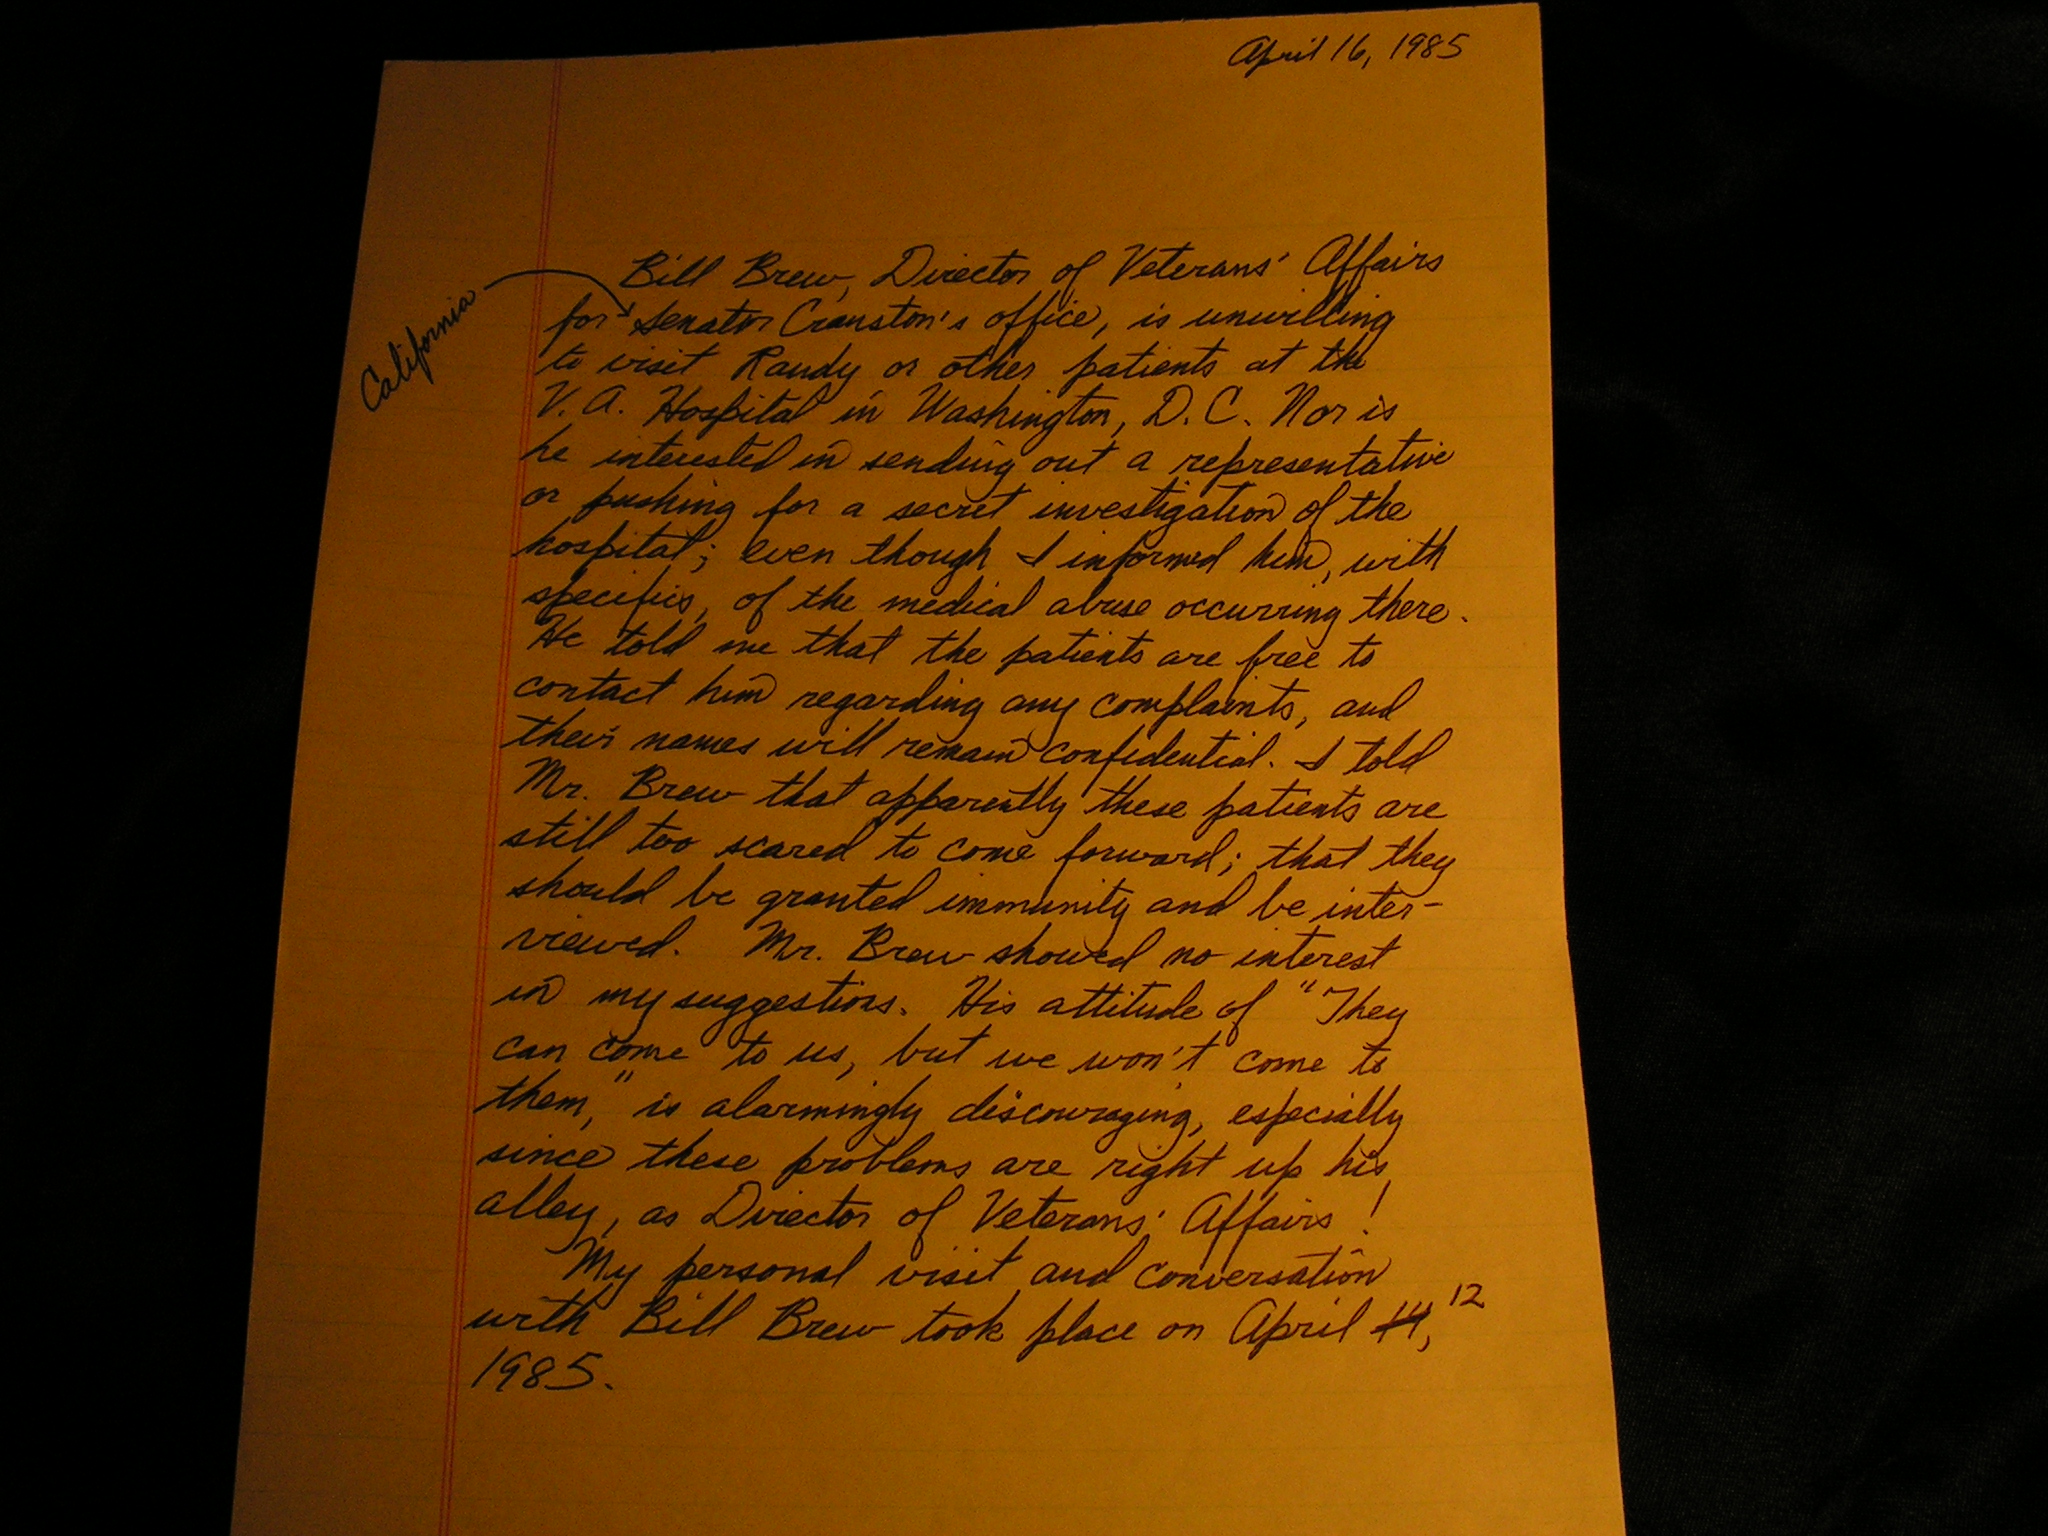 April 16, 1985
Bill Brew, Director of Veterans' Affairs
California
for Senator Cranston's office, is unwilling
to visit Randy or other patients at the
V. A. Hospital in Washington, D. C. Nor is
he interested in sending out a representative
or pushing for a secret investigation of the
hospital; even though I informed him, with
specifics, of the medical abuse occurring there.
He told me that the patients are free to
contact him regarding any complaints, and
their names will remain confidential. I told
Mr. Brew that apparently these patients are
still too scared to come forward; that they
should be granted immunity and be inter-
viewed. Mr. Brew showed no interest
in my suggestions. His attitude of "They
can come to us, but we won't come to
them," is alarmingly discouraging, especially
since these problems are right up his
alley, as Director of Veterans' Affairs!
My personal visit and conversation
with Bill Brew took place on April 12,
1985.